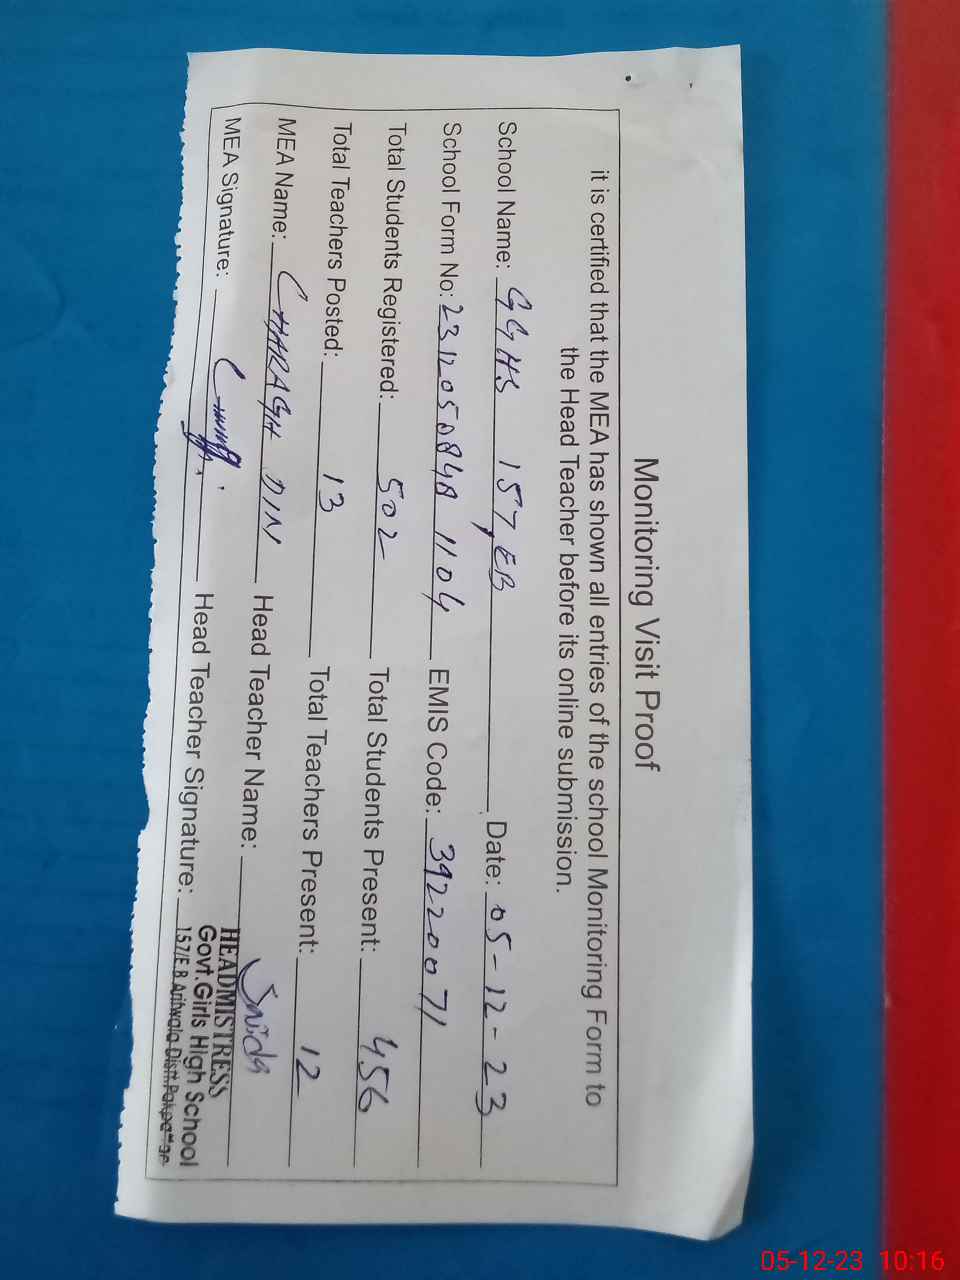 Monitoring Visit Proof
it is certified that the MEA has shown all entries of the school Monitoring Form to
the Head Teacher before its online submission.
School Name: GGHS 157 EB Date: 05-12-23
School Form No: 2312050848 1104 EMIS Code: 39220071
Total Students Registered: 502 Total Students Present: 456
Total Teachers Posted: 13 Total Teachers Present: 12
MEA Name: CHARAGH DIN Head Teacher Name:
MEA Signature: Head Teacher Signature:
HEADMISTRESS
Govt.Girls High School
157/E B Arifwala Distt.Pakpattan
05-12-23 10:16